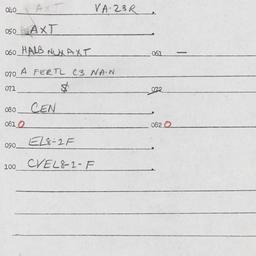 040 AXT VA-23R
050 AXT
060 HALB NUR AXT 061 —
070 A FERTL C3 NA-N
071 $ 072
080 CEN
081 O 082 O
090 EL8-2F
100 CVEL8-1-F